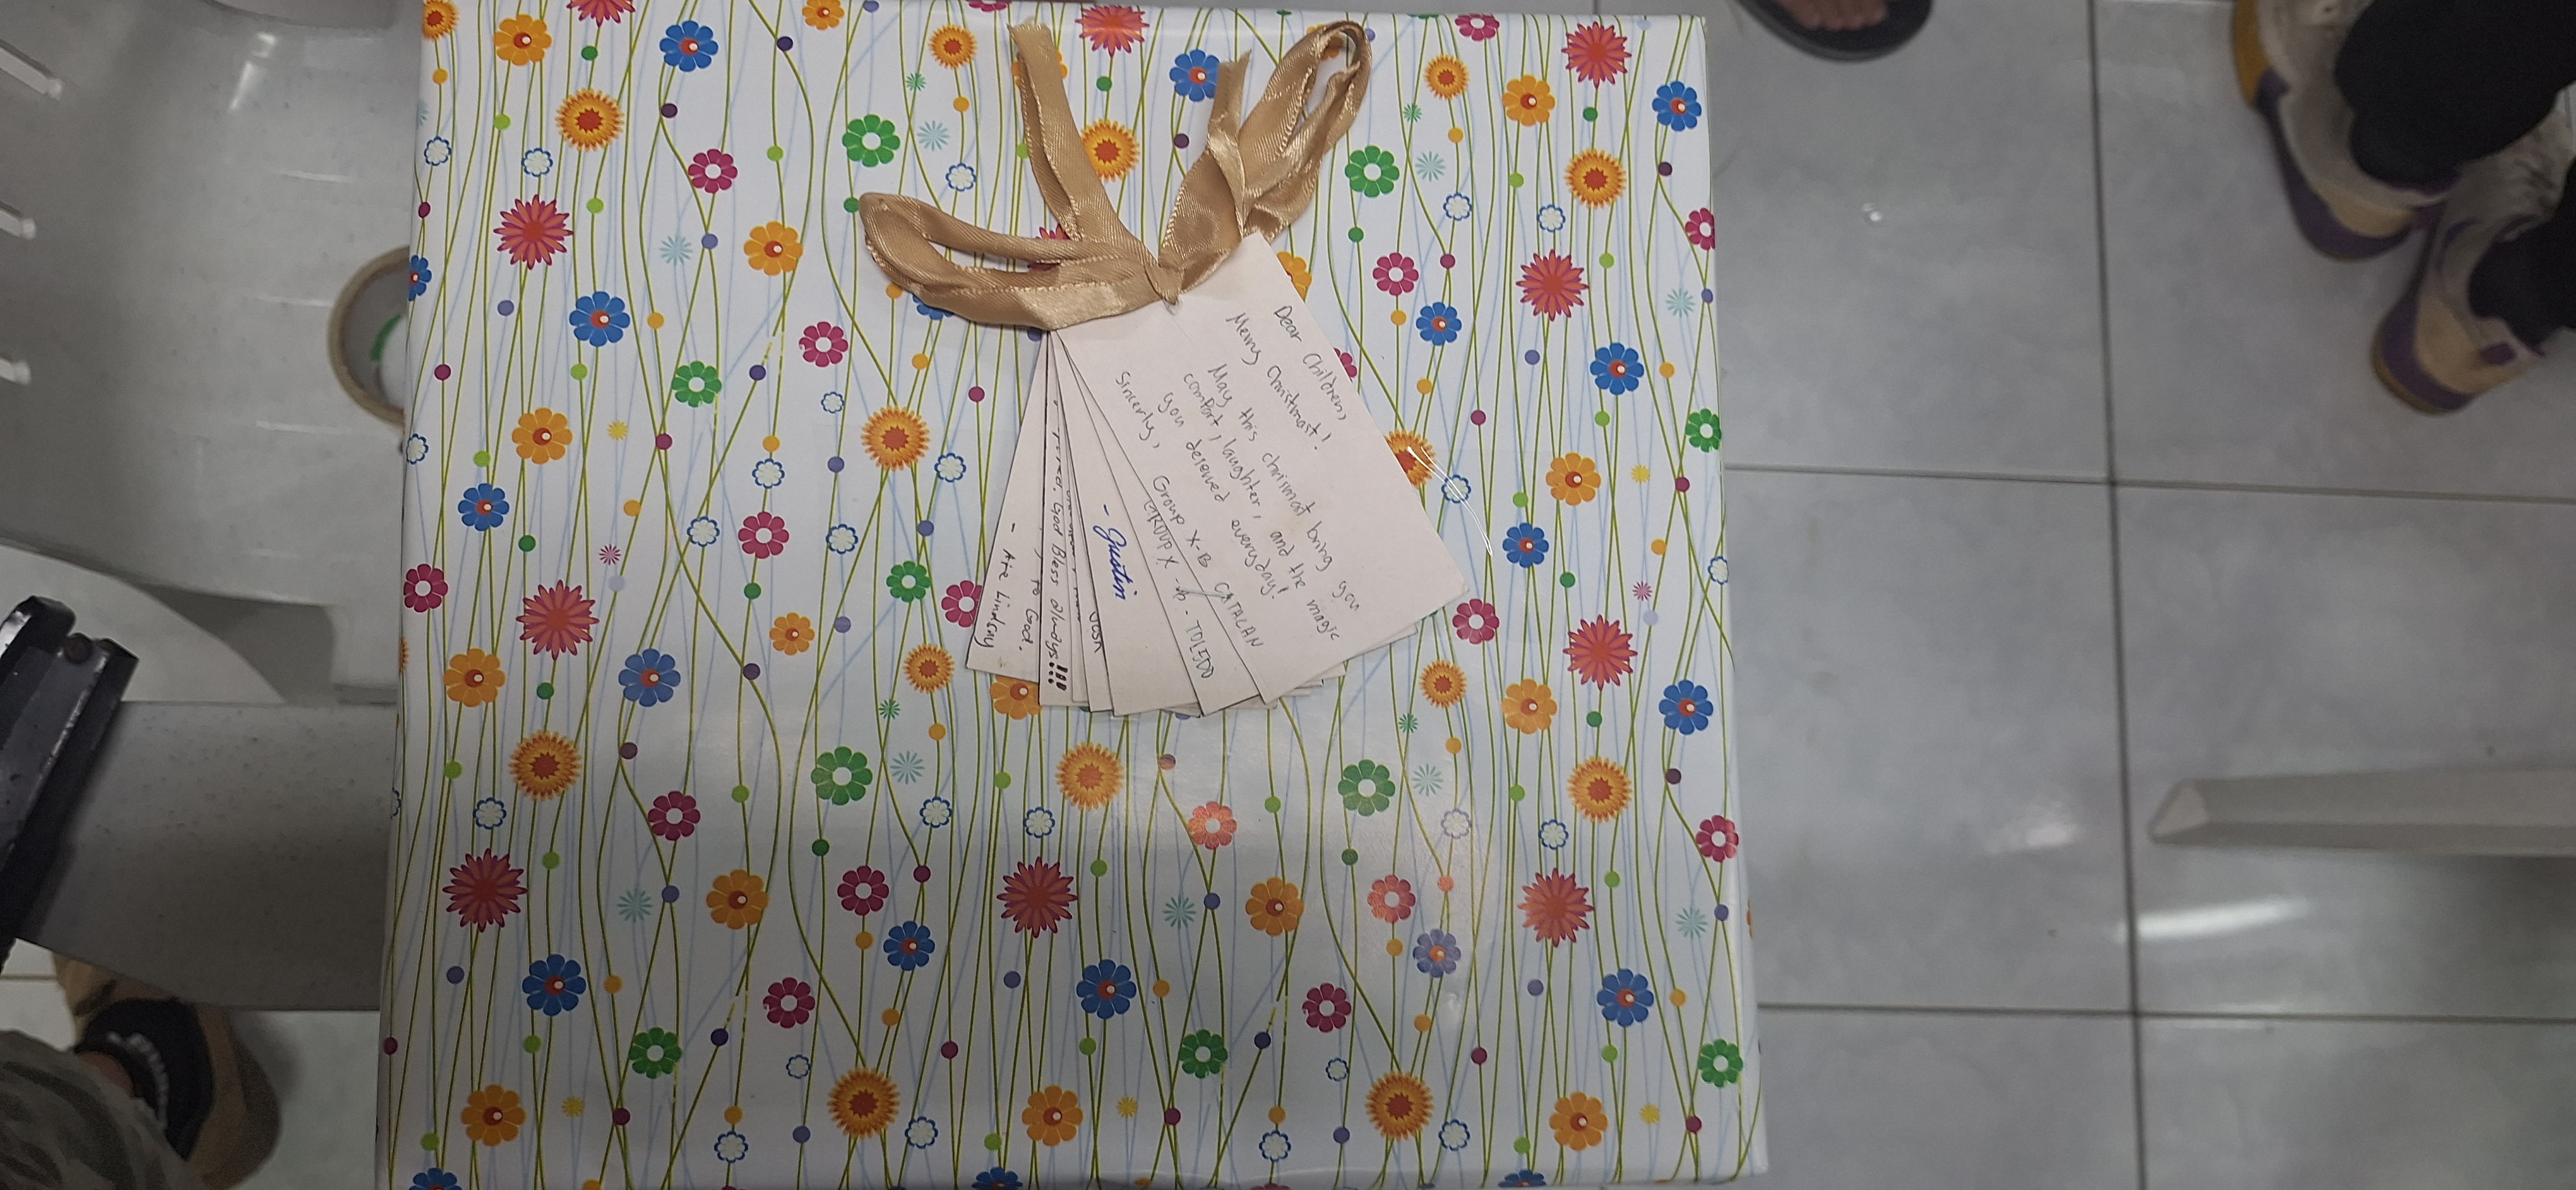 Dear Children,
Merry Christmast!
May this christmast bring you
comfort, laughter, and the magic
you deserved everyday!
Sincerely,
Group X-B
CATALAN
GROUP X -
- TOLEDO
- Justin
God Bless always
!!!
to God.
- Ate Lindsay